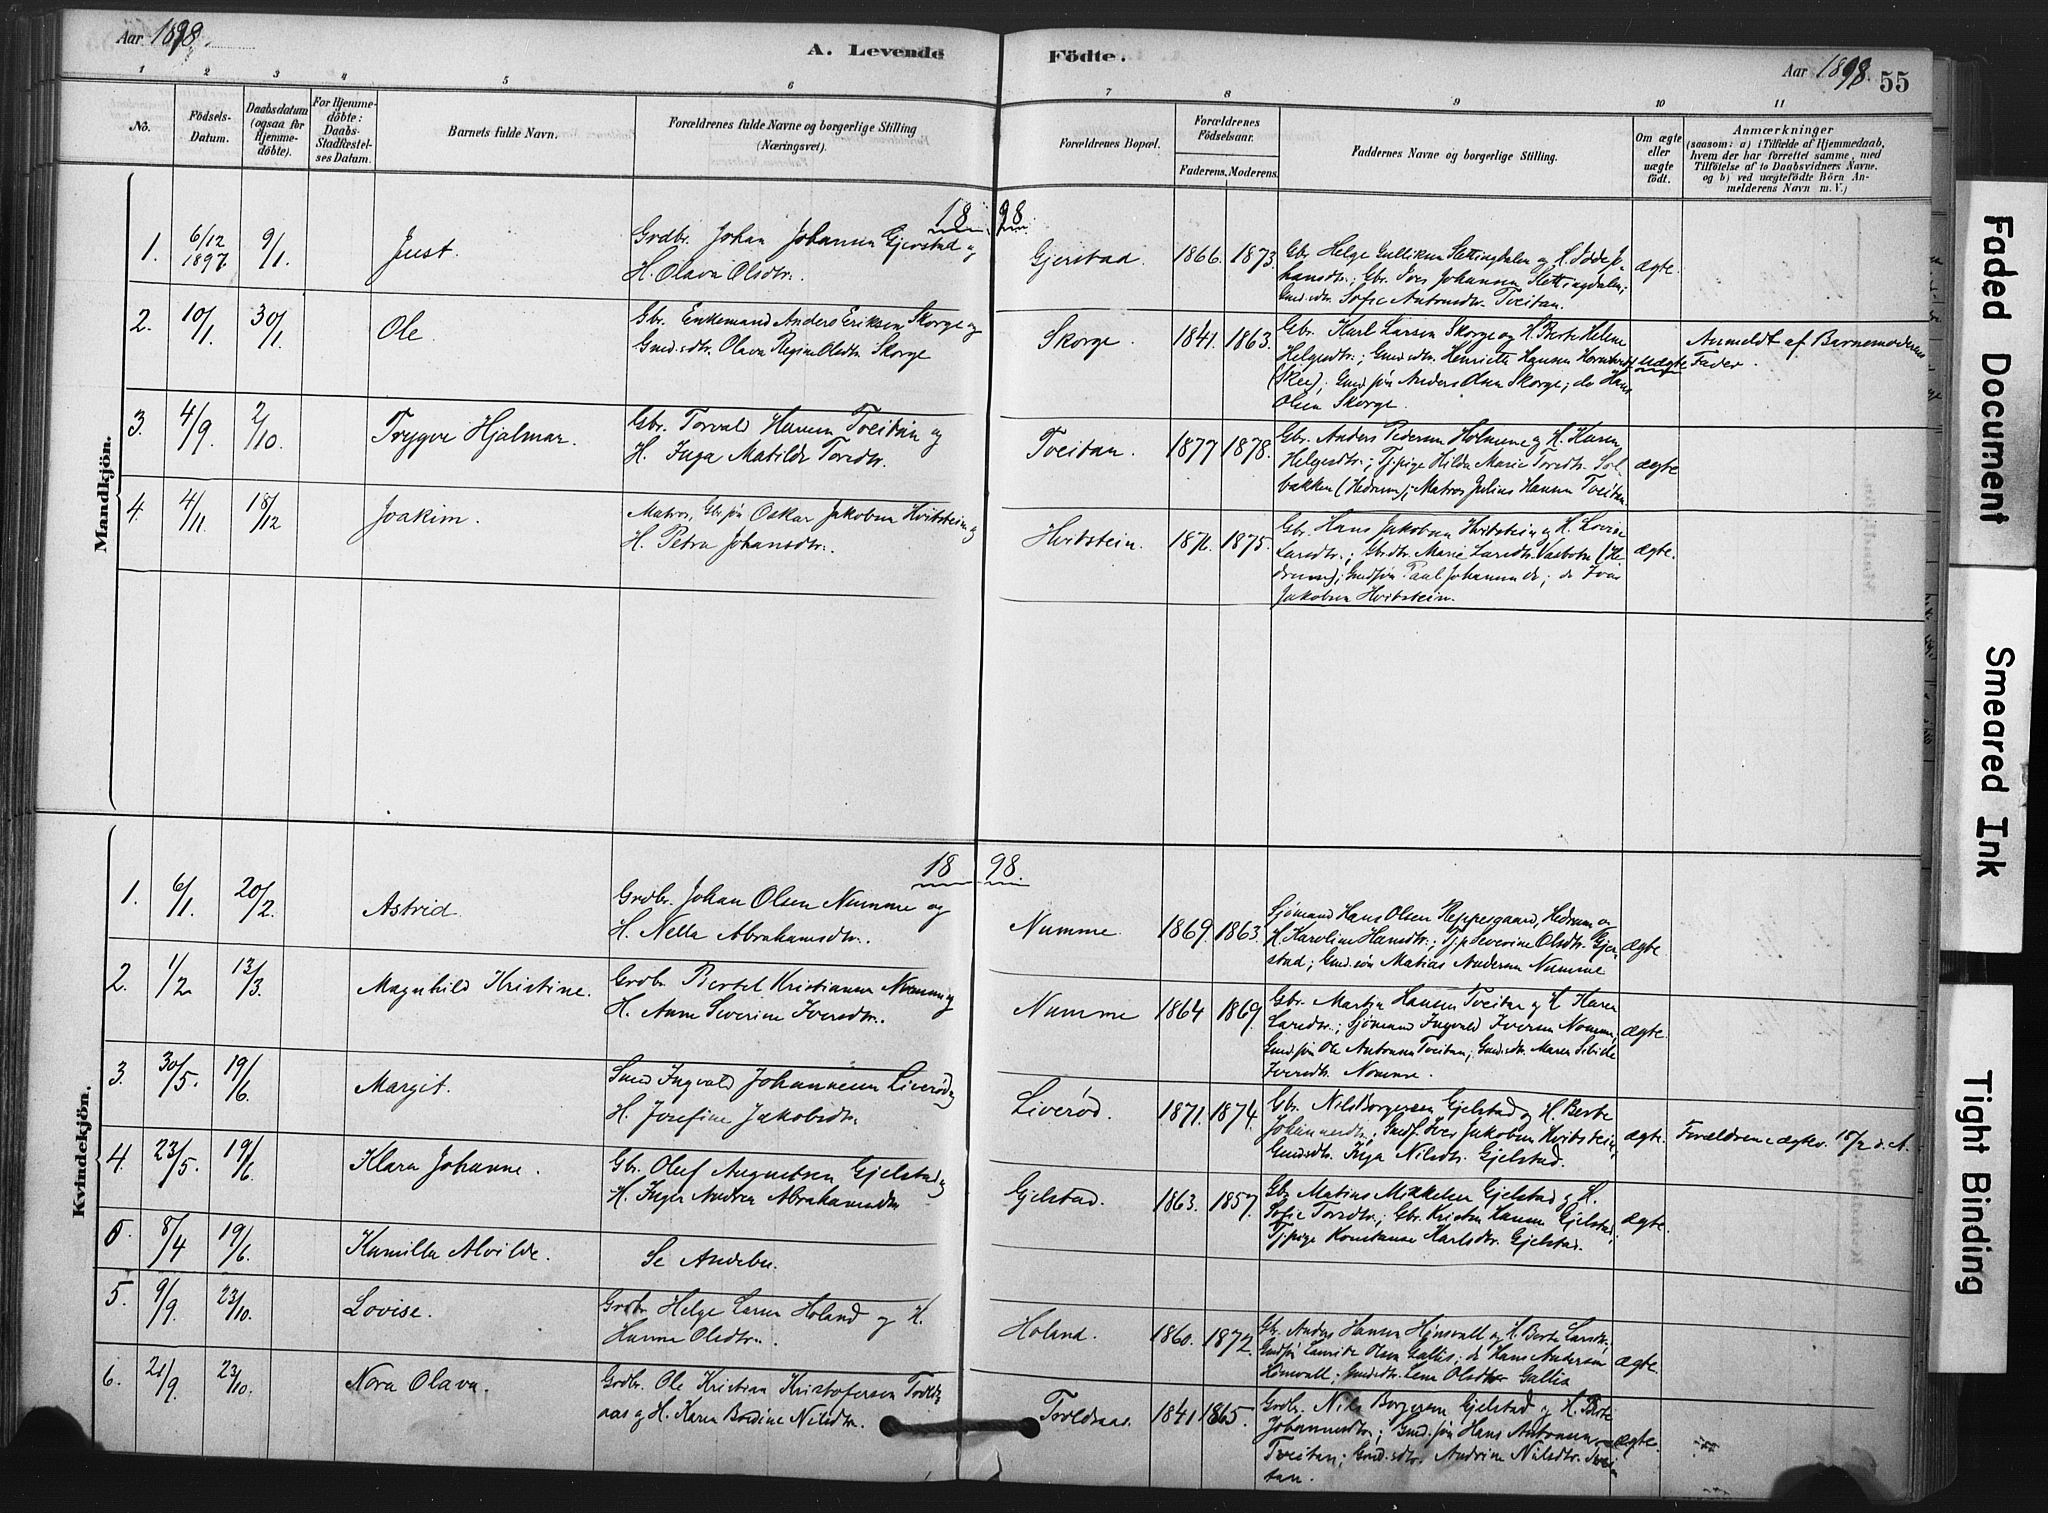 Aar 1898.
A. Levende Födte.
Aar 1898. 55
1 2 3 4 5 6 7 8 9 10 11
No.
Födsels-
Datum.
Daabsdatum
(ogsaa for
Hjemme-
döbte).
For Hjemme-
döbte:
Daabs-
Stadfæstel-
ses Datum.
Barnets fulde Navn.
Forældrenes fulde Navne og borgerlige Stilling
(Næringsvei).
Forældrenes Bopæl.
Forældrenes
Födselsaar.
Faderens. Moderens.
Faddernes Navne og borgerlige Stilling.
Om ægte
eller
uægte
födt.
Anmærkninger
(saasom: a) i Tilfælde af Hjemmedaab,
hvem der har forrettet samme, med
Tilföielse af to Daabsvidners Navne.
og b) ved uægtefödte Börn An-
melderens Navn m. V.)
Mandkjön.
18 98.
1. 6/12 1897. 9/1. Just.
Grdbr. Johan Johansen Gjerstad og
H. Olava Olsdtr.
Gjerstad. 1866. 1873.
Gbr. Helge Gulliksen Slettingdalen og H.
Gbr. Iver Johansen Slettingdalen;
Gmd.sdtr. Sofie Antonsdtr. Tveitan.
ægte.
2. 10/1. 30/1. Ole
Gbr. Enkemand Anders Eriksen Skorge og
Gmd.sdtr. Olava Regine Olsdtr. Skorge
Skorge. 1841. 1863.
Gbr. Karl Larsen Skorge og H. Berte Helene
Helgesdtr.; Gmd.sdtr. Henriette Hansen
(Skee); Gmd.søn Anders Olsen Skorge; do Hans
Olsen Skorge.
uægte
Anmeldt af Barnemoderens
Fader.
3. 4/9. 2/10. Trygve Hjalmar.
Gbr. Torvald Hansen Tveitan og
H. Inga Matilde Toresdtr.
Tveitan. 1877 1878.
Gbr. Anders Pedersen Holmene og H. Karen
Helgesdtr.; Tj.pige Hilda Marie Toresdtr. Sol-
bakken (Hedrum); Matros Julius Hansen Tveitan.
ægte
4. 4/11. 18/12 Joakim.
Matros, Gbr.søn Oskar Jakobsen Hvitstein og
H. Petra Johansdtr.
Hvitstein. 1875.
Gbr. Hans Jakobsen Hvitstein og H. Lovise
Larsdtr.; Gbrdtr. Marie Larsdtr. Vasbotn (He-
drum); Gmdsøn Paul Johannsen do; do Ivar
Jakobsen Hvitstein.
ægte.
Kvindekjön.
18 98.
1. 6/1. 20/2. Astrid.
Grdbr. Johan Olsen Numme og
H. Nella Abrahamsdtr.
Numme. 1869. 1863.
Sjömand Hans Olsen Reppesgaard, Hedrum og
H. Karoline Hansdtr.; Tj.p. Severine Olsdtr. Gjer-
stad; Gmd.søn Matias Andersen Numme
ægte.
2. 1/2. 13/3. Magnhild Kristine.
Grdbr. Bertel Kristiansen Nommeog
H. Anne Severine Iversdtr.
Numme 1864 1869.
Gbr. Martin Hansen Tveitan og H. Karen
Larsdtr.; Sjömand Ingvald Iversen Nomme,
Gmd.søn Ole Antonsen Tveitan; Gmd.sdtr. Maren Sibille
Iversdtr. Nomme.
ægte.
3. 30/5. 19/6. Margit.
Smed Ingvald Johannesen Liverød og
H. Josefine Jakobsdtr.
Liverød. 1871. 1874.
Gbr. Nils Borgersen Gjelstad og H. Berte
Johannesdtr.; Gmdf. Iver Jakobsen Hvitstein;
Gmd.sdtr. Inga Nilsdtr. Gjelstad.
ægte. Forældrene ægtev. 18/2 d.A.
4. 23/5. 19/6. Klara Johanne.
Gbr. Oluf Augustsen Gjelstad og
H. Inger Andrea Abrahamsdtr
Gjelstad. 1863. 1857.
Gbr. Matias Mikkelsen Gjelstad og H.
Sofie Toresdtr.; Gbr. Kristen Hansen Gjelstad;
Tj.pige Konstanse Karlsdtr. Gjelstad.
ægte.
8/4 19/6. Kamilla Alvilde. Se Andebu.
5. 9/9. 23/10. Lovise.
Grdbr. Helge Larsen Holand og H.
Hanne Olsdtr.
Holand. 1860. 1872.
Gbr. Anders Hansen Hynsvall og H. Berte Larsdtr.
Gmdsøn Lauritz Olsen Gallis; do Hans Andersen
Hönsvall; Gmd.sdtr. Lene Olsdtr Gallis
ægte.
6. 21/9. 23/10. Nora Olava.
Grdbr. Ole Kristian Kristofersen Toreds-
aas og H. Karen Bordine Nilsdtr.
1841 1865.
Grdbr. Nils Borgersen Gjelstad og H. Berte
Johannesdtr.; Gmd.søn Hans Antonsen
Tveitan; Gmd.sdtr. Andrine Nilsdtr. Tvei-
tan.
ægte.
Faded Document
Smeared Ink
Tight Binding